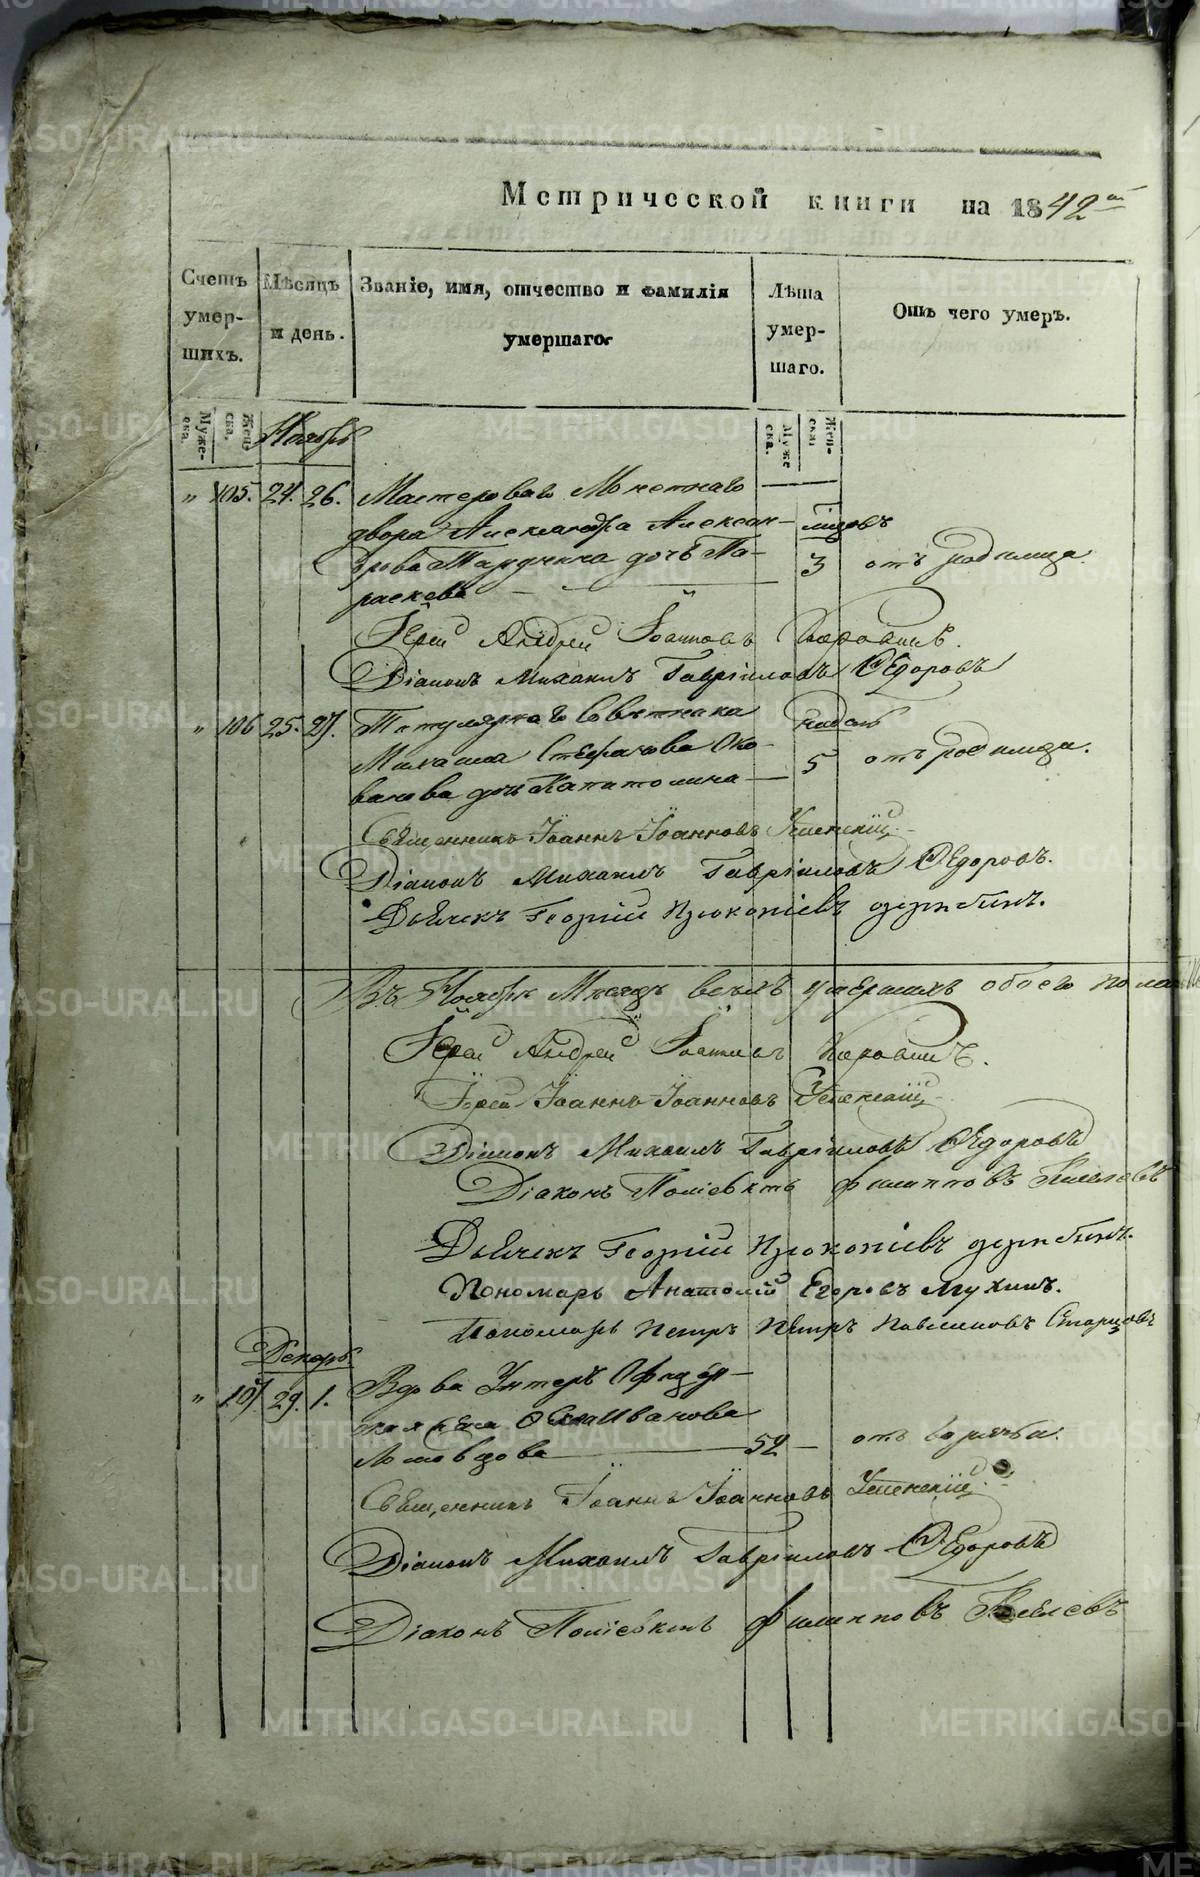 Метрической книги на 1842й
Счетъ умер-шихъ.
Мѣсяцъ и день.
Званіе, имя, отчество и фамилія умершаго.
Лѣта умер-шаго.
Отъ чего умеръ.
Муже-ска.
Жен-ска.
Муже-ска.
Жен-ска.
Ноябрь
" 105. 24. 26. Мастероваго Монетнаго
двора Александра Алексан-
дрова дочь Па- 3 отъ родимца.
раскева
Іерей Андрей Іоанновъ
Діаконъ Михаилъ Гавріиловъ Ѳедоровъ
" 106 25. 27. Титулярнаго Совѣтника недѣль
Михаила Стефанова Око- 5 отъ родимца.
ванова дочь Капитолина
Священникъ Іоаннъ Іоанновъ Успенскій
Діаконъ Михаилъ Гавріиловъ Ѳедоровъ.
Дьячекъ Георгій Прокопіевъ
Въ Ноябрѣ Мѣсяцѣ всѣхъ умершихъ обоего пола
Іерей Андрей Іоанновъ
Іерей Іоаннъ Іоанновъ Успенскій
Діаконъ Михаилъ Гавріиловъ Ѳедоровъ
Діаконъ Поліевктъ Филипповъ Киселевъ
Дьячекъ Георгій Прокопіевъ
Пономарь Анатолій Егоровъ Мухинъ.
Пономарь Петръ Петръ Павлиновъ Старцовъ
Декабрь
" 107 29. 1. Вдова Унтеръ Офицер-
ская жена Иванова
52 отъ горячки.
Священникъ Іоаннъ Іоанновъ Успенскій
Діаконъ Михаилъ Гавріиловъ Ѳедоровъ
Діаконъ Поліевктъ Филипповъ Киселевъ
METRIKI.GASO-URAL.RU